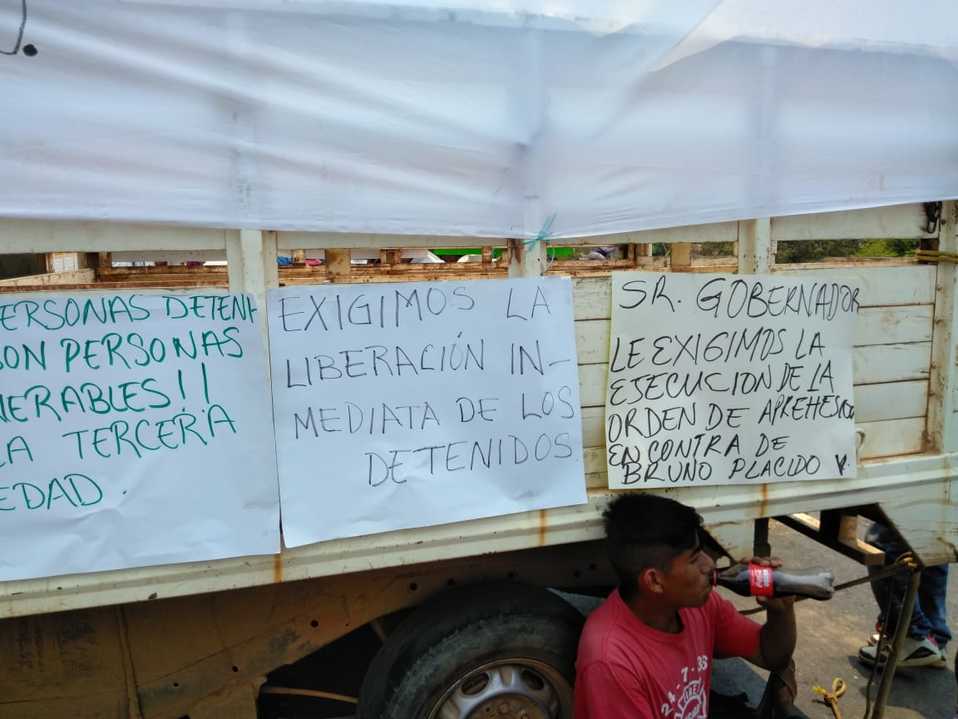 ERSONAS DETEN
SON PERSONAS
NERABLES!!
LA TERCERA
EDAD.
EXIGIMOS LA
LIBERACIÓN IN-
MEDIATA DE LOS
DETENIDOS.
SR. GOBERNADOR
LE EXIGIMOS LA
EJECUCION DE LA
ORDEN DE APREHESION
EN CONTRA DE
BRUNO PLACIDO V.
Coca-Cola
24-7-33